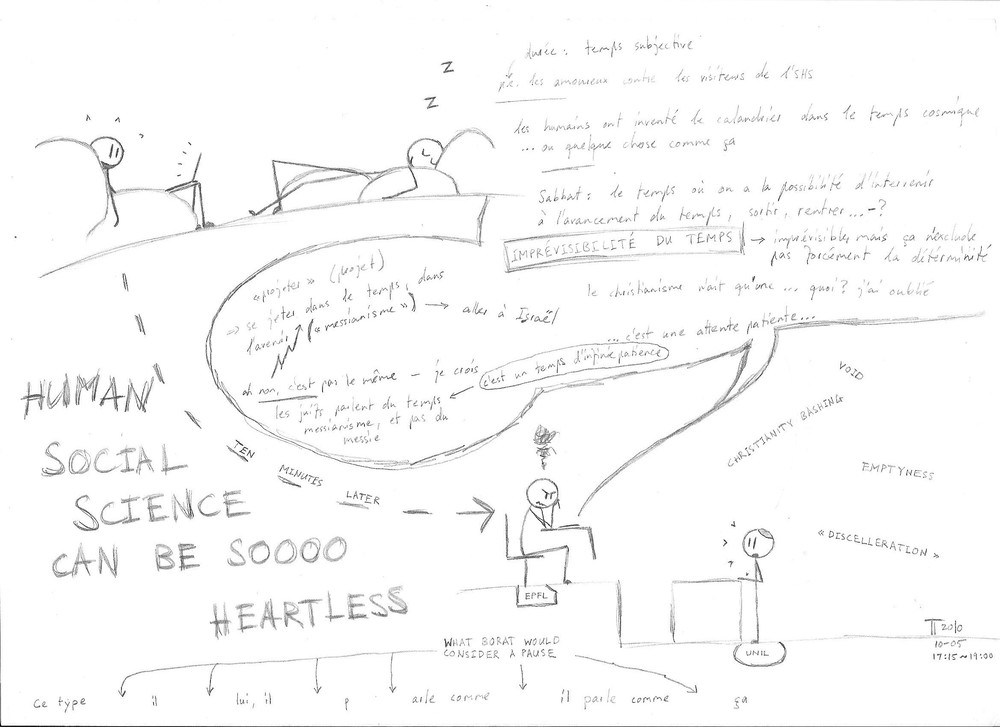 Z
Z
durée : temps subjective
p.ex. les amoureux contre les visiteurs de l'SHS
les humains ont inventé le calandrier dans le temps cosmique
... ou quelque chose comme ça
Sabbat : le temps où on a la possibilité d'intervenir
à l'avancement du temps, sortir, rentrer...-?
IMPRÉVISIBILITÉ DU TEMPS → imprévisible, mais ça n'exclude
pas forcément la déterminité
le christianisme n'ait qu'une ... quoi? j'ai oublié
... c'est une attente patiente...
«projeter» (projet)
⇒ se jeter dans le temps, dans
l'avenir («messianisme») → aller à Israël
ah non, c'est pas le même – je crois
c'est un temps d'infinie patience
les juifs parlent du temps
messianisme, et pas du
messie
HUMAN
SOCIAL
SCIENCE
CAN BE SOOOO
HEARTLESS
TEN
MINUTES
LATER
VOID
CHRISTIANITY BASHING
EMPTYNESS
«DISCELLERATION»
EPFL
UNIL
2010
10-05
17:15~19:00
WHAT BORAT WOULD
CONSIDER A PAUSE
Ce type il lui, il p arle comme il parle comme ça